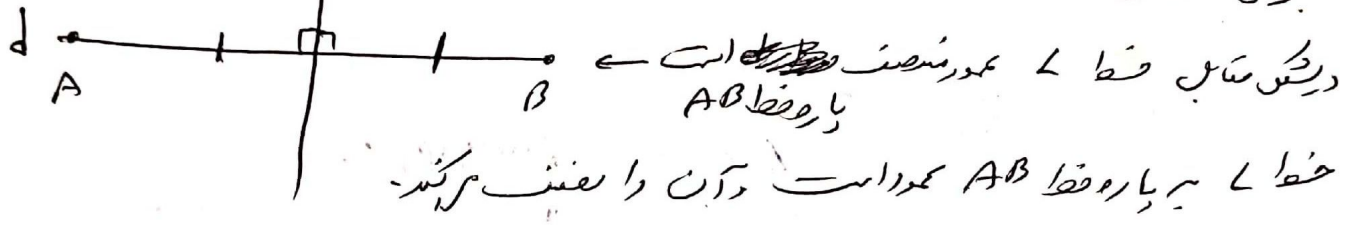 d
A
B
در شکل مقابل خط L عمود منصف است ←
پاره خط AB
خط L بر پاره خط AB عمود است و آن را نصف می‌کند.